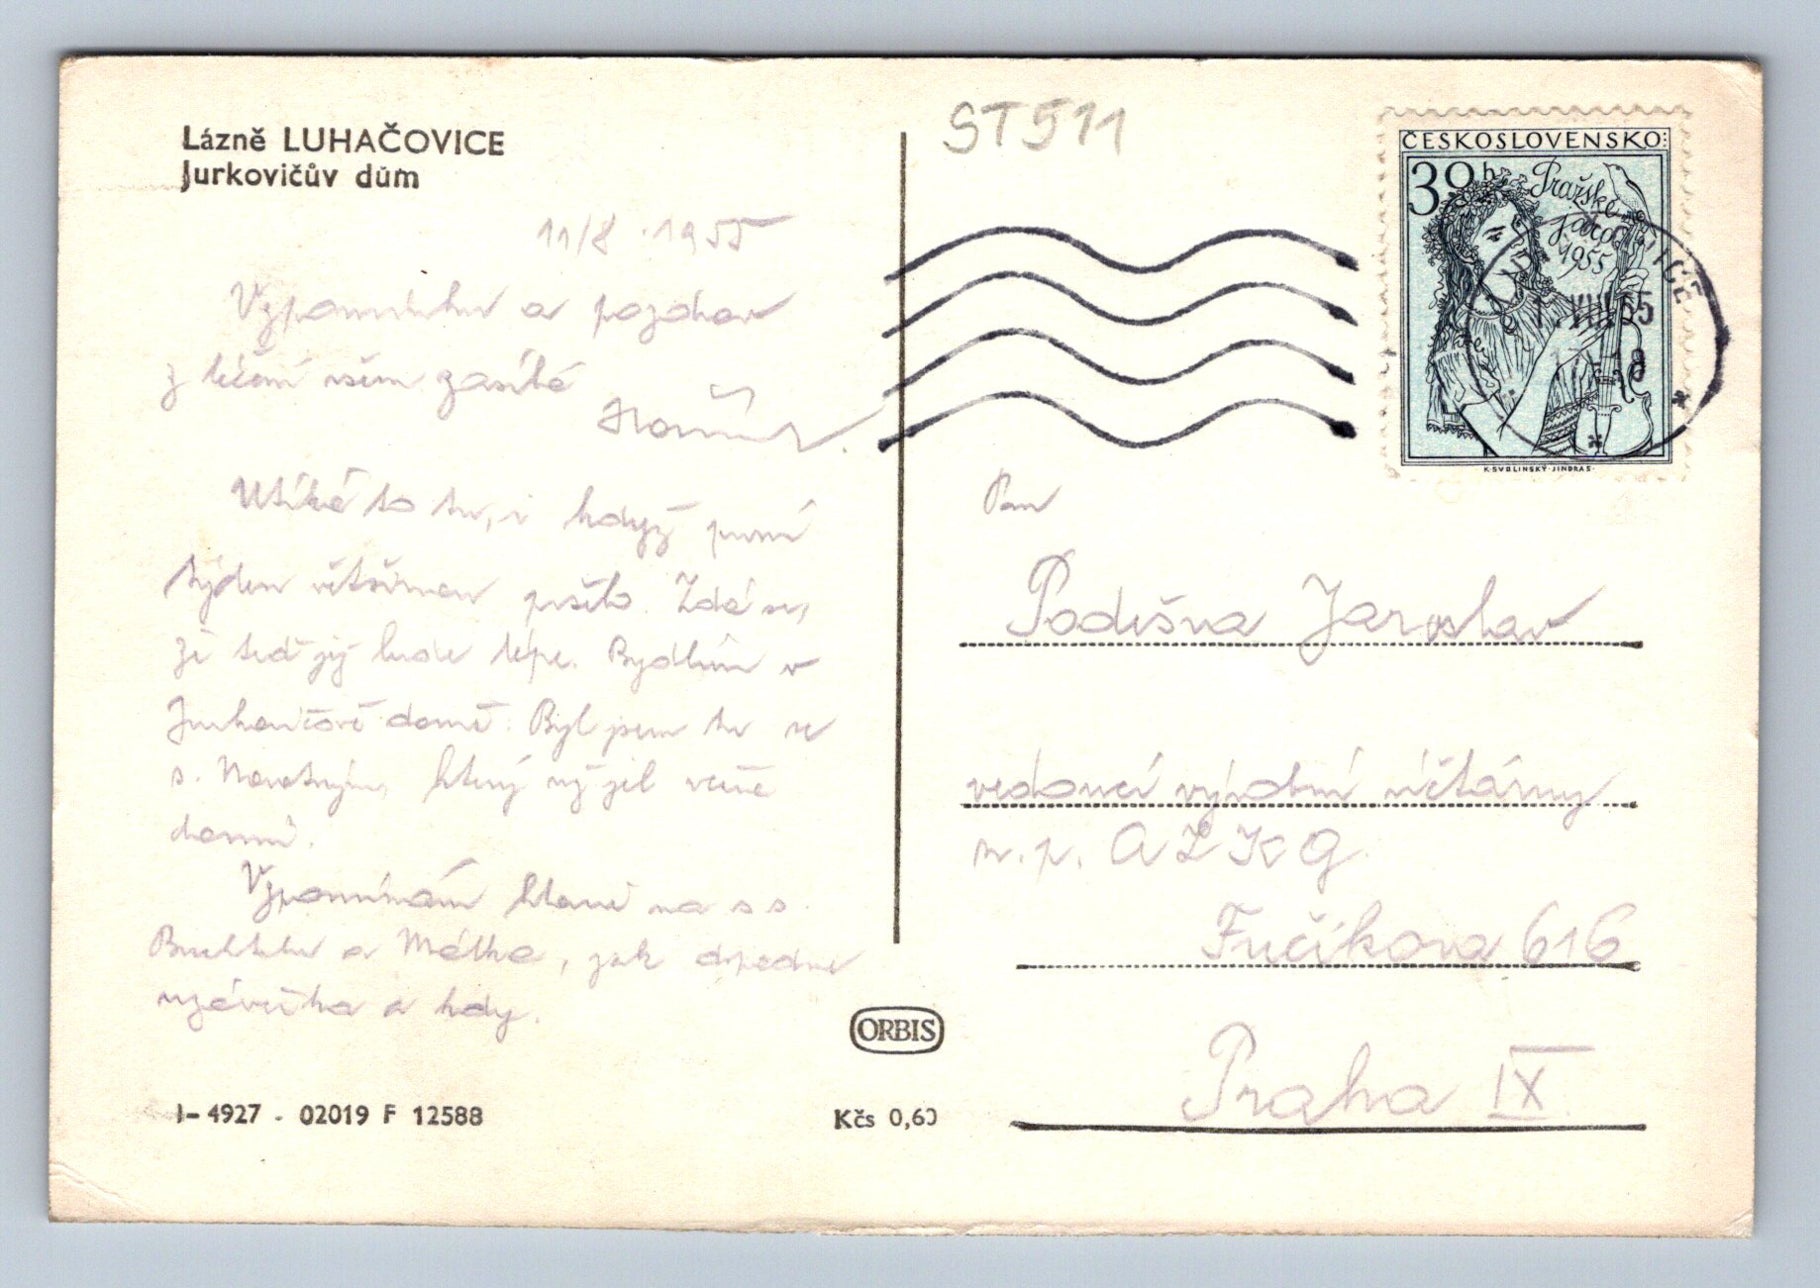 Lázně LUHAČOVICE
Jurkovičův dům
11/8 . 1955
Vzpomínku a pozdrav
z léčení všem zasílá
Utíká to tu, i když první
týden většinou pršelo. Zdá se,
že teď již bude lépe. Bydlím v
Jurkovičově domě. Byl jsem tu se
s. Novotným, který již jel
domů.
Vzpomínám hlavně na s s.
a jak dopadne
uzávěrka a kdy.
I-4927 - 02019 F 12588
ORBIS
Kčs 0,60
ST511
ČESKOSLOVENSKO
30h
Pražské
jaro
1955
K.SVOLINSKÝ-JINDRA S.
VIII 55
18
Pan
Podešva Jaroslav
vedoucí výrobní účtárny
n.p. AZKG
Fučíkova 616
Praha IX